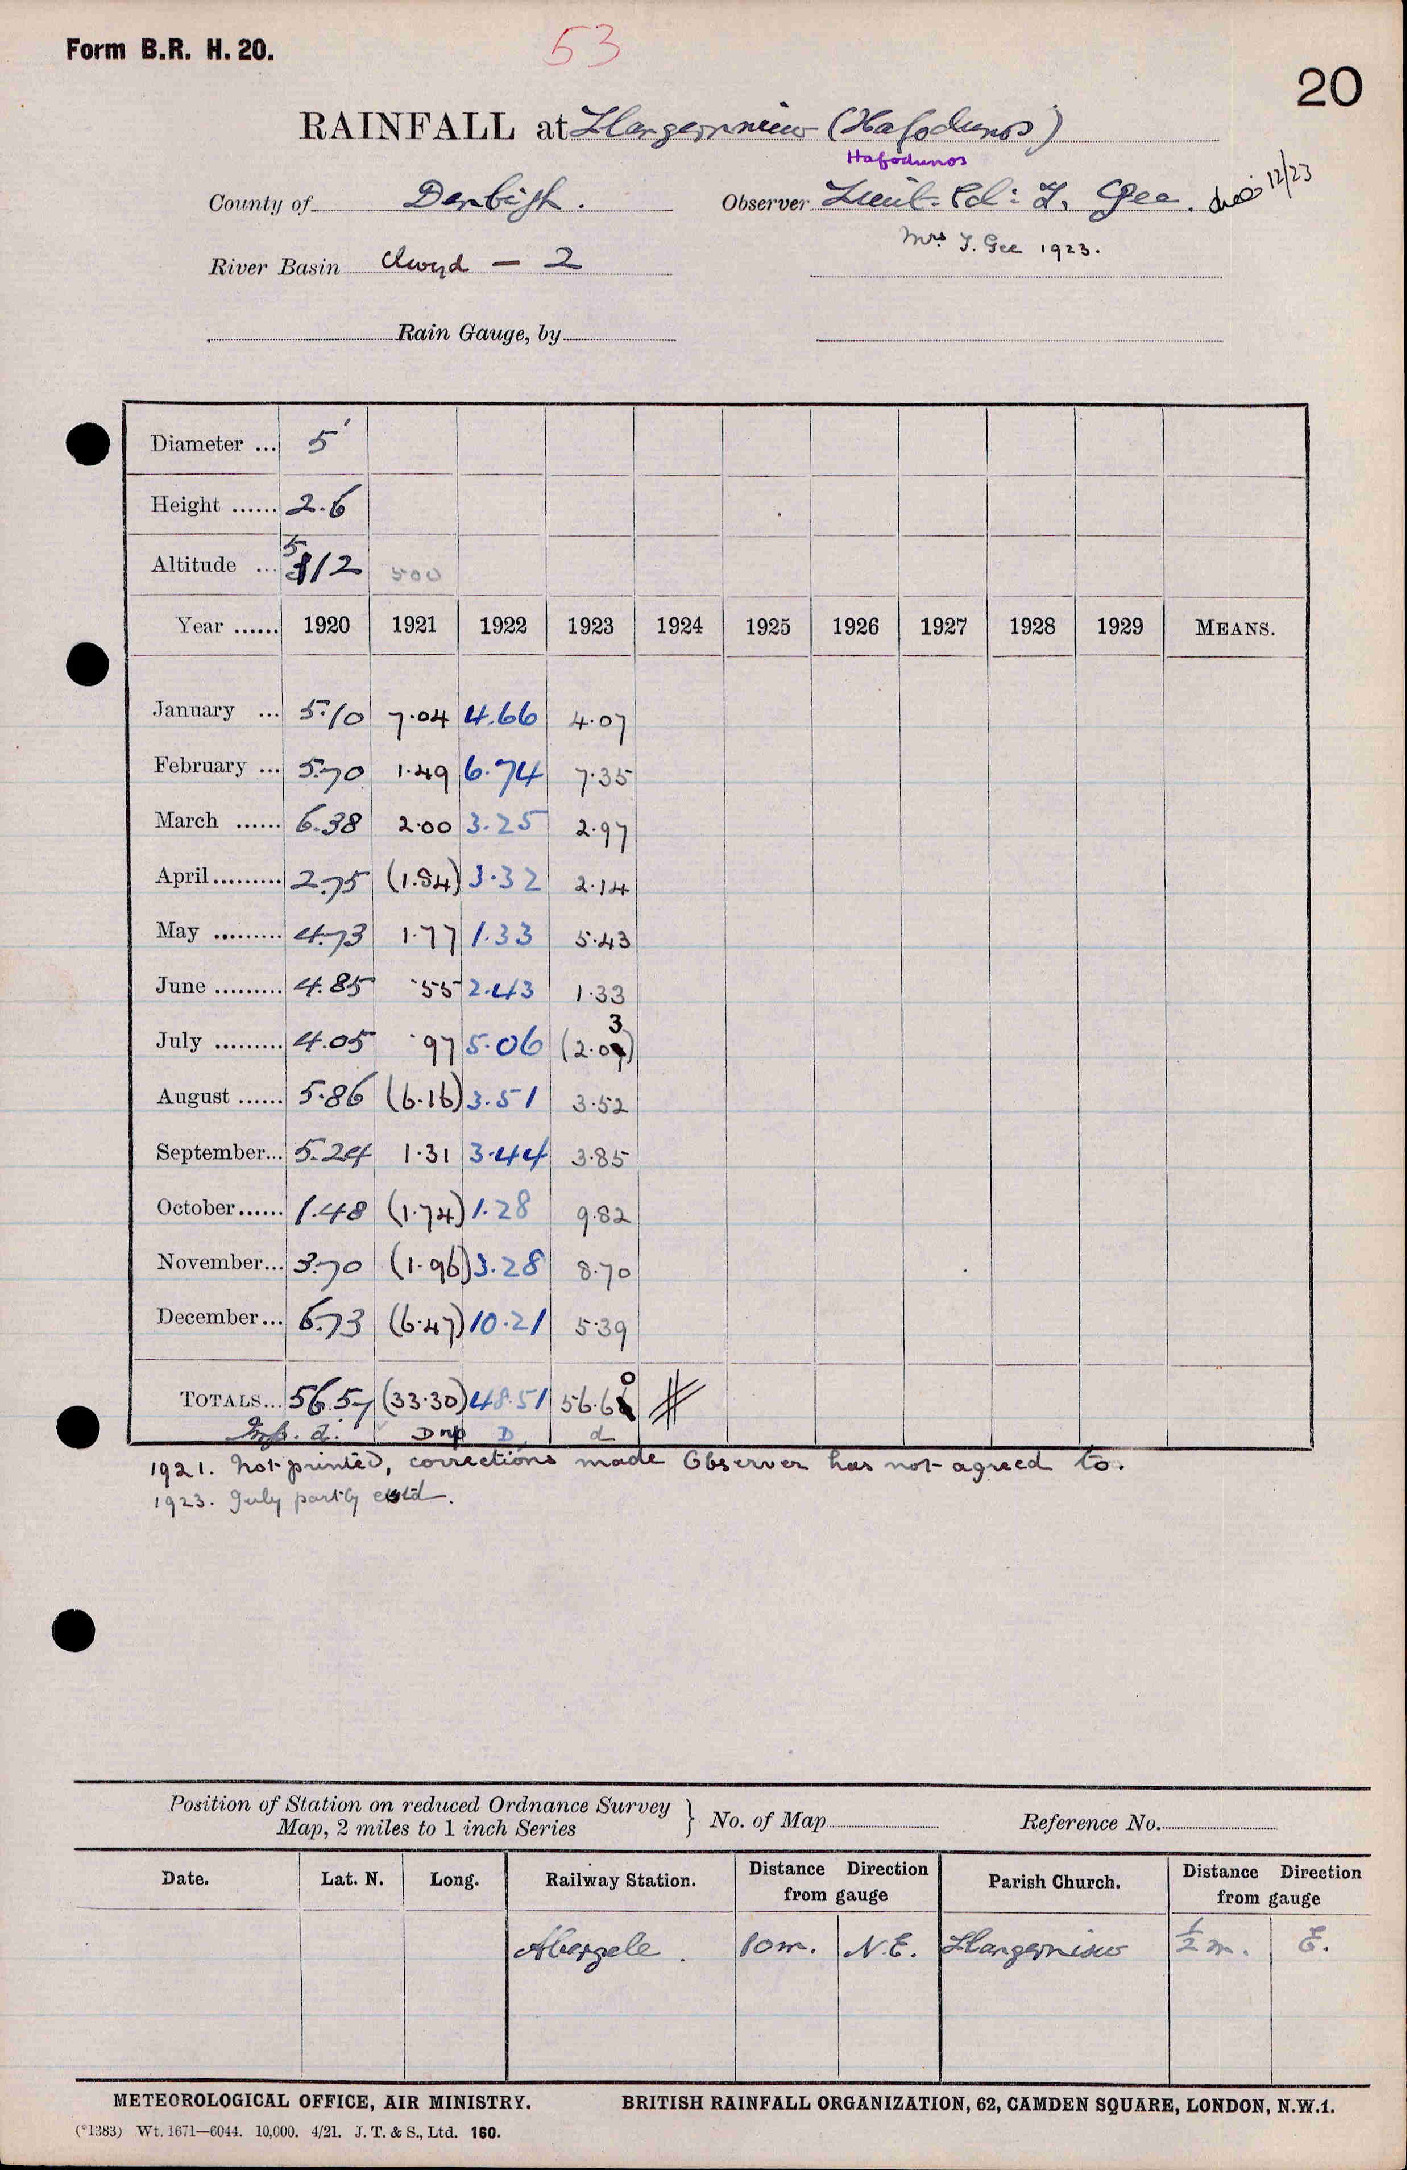 Form B.R. H. 20.
53
20
RAINFALL at Llangerniew (Hafodunos)
Hafodunos
County of Denbigh. Observer Lieut. Col: T. Gee. died 12/23
Mrs T. Gee 1923.
River Basin Clwyd — 2
Rain Gauge, by
Diameter ... 5
Height ...... 2.6
Altitude ... 512 500
Year ...... 1920 1921 1922 1923 1924 1925 1926 1927 1928 1929 MEANS.
January ... 5.10 7.04 4.66 4.07
February ... 5.70 1.49 6.74 7.35
March ...... 6.38 2.00 3.25 2.97
April......... 2.75 (1.84) 3.32 2.14
May ......... 4.73 1.77 1.33 5.43
June ......... 4.85 .55 2.43 1.33
July ......... 4.05 .97 5.06 (2.03)
August ...... 5.86 (6.16) 3.51 3.52
September... 5.24 1.31 3.44 3.85
October...... 1.48 (1.74) 1.28 9.82
November... 3.70 (1.96) 3.28 8.70
December... 6.73 (6.47) 10.21 5.39
TOTALS... 56.57 (33.30) 48.51 56.60
d. Dnp D d
1921. Not printed, corrections made Observer has not agreed to.
1923. July partly estd.
Position of Station on reduced Ordnance Survey
Map, 2 miles to 1 inch Series } No. of Map Reference No.
Date. Lat. N. Long. Railway Station. Distance Direction from gauge Parish Church. Distance Direction from gauge
Abergele. 10m. N.E. Llangerniew ½ m. E.
METEOROLOGICAL OFFICE, AIR MINISTRY. BRITISH RAINFALL ORGANIZATION, 62, CAMDEN SQUARE, LONDON, N.W.1.
(*1383) Wt. 1671—6044. 10,000. 4/21. J. T. & S., Ltd. 160.